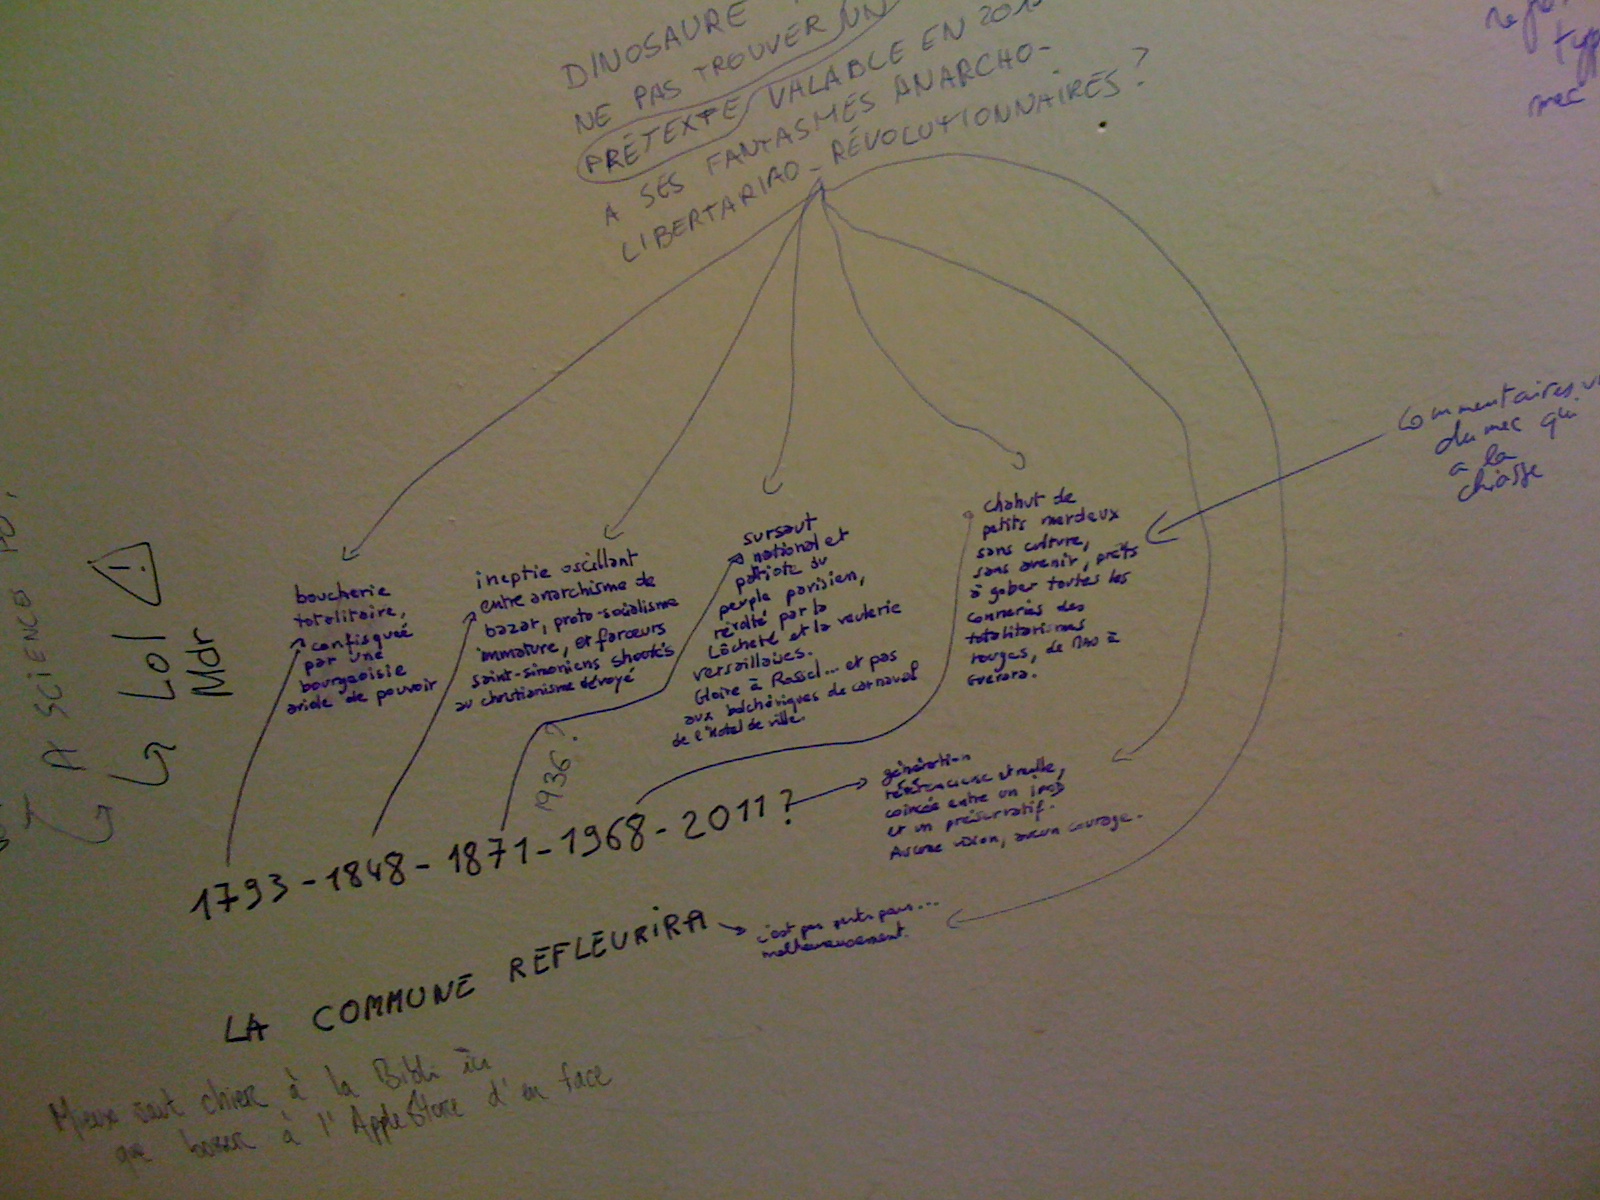 DINOSAURE
NE PAS TROUVER UN
PRÉTEXTE VALABLE EN
A SES FANTASMES ANARCHO-
LIBERTARIAO-RÉVOLUTIONNAIRES?
mec
Commentaires
du mec qui
a la
chiasse
A SCIENCES PO,
Lol
Mdr
boucherie
totalitaire,
confisquée
par une
bourgeoisie
avide de pouvoir
ineptie oscillant
entre anarchisme de
bazar, proto-socialisme
immature, et farceurs
saint-simoniens shootés
au christianisme dévoyé
sursaut
national et
patriote du
peuple parisien,
révolté par la
lâcheté et la veulerie
versaillaises.
Gloire à Rossel... et pas
aux bolchéviques de carnaval
de l'Hotel de ville.
chahut de
petits merdeux
sans culture,
sans avenir, prêts
à gober toutes les
conneries des
totalitarismes
rouges, de Mao à
Guevara.
1936?
génération
coincée entre un IPOD
et un préservatif.
Aucune vision, aucun courage.
1793-1848-1871-1968-2011?
LA COMMUNE REFLEURIRA
c'est pas parti pour...
malheureusement.
Mieux vaut chier à la Bibli ici
que bosser à l'AppleStore d'en face